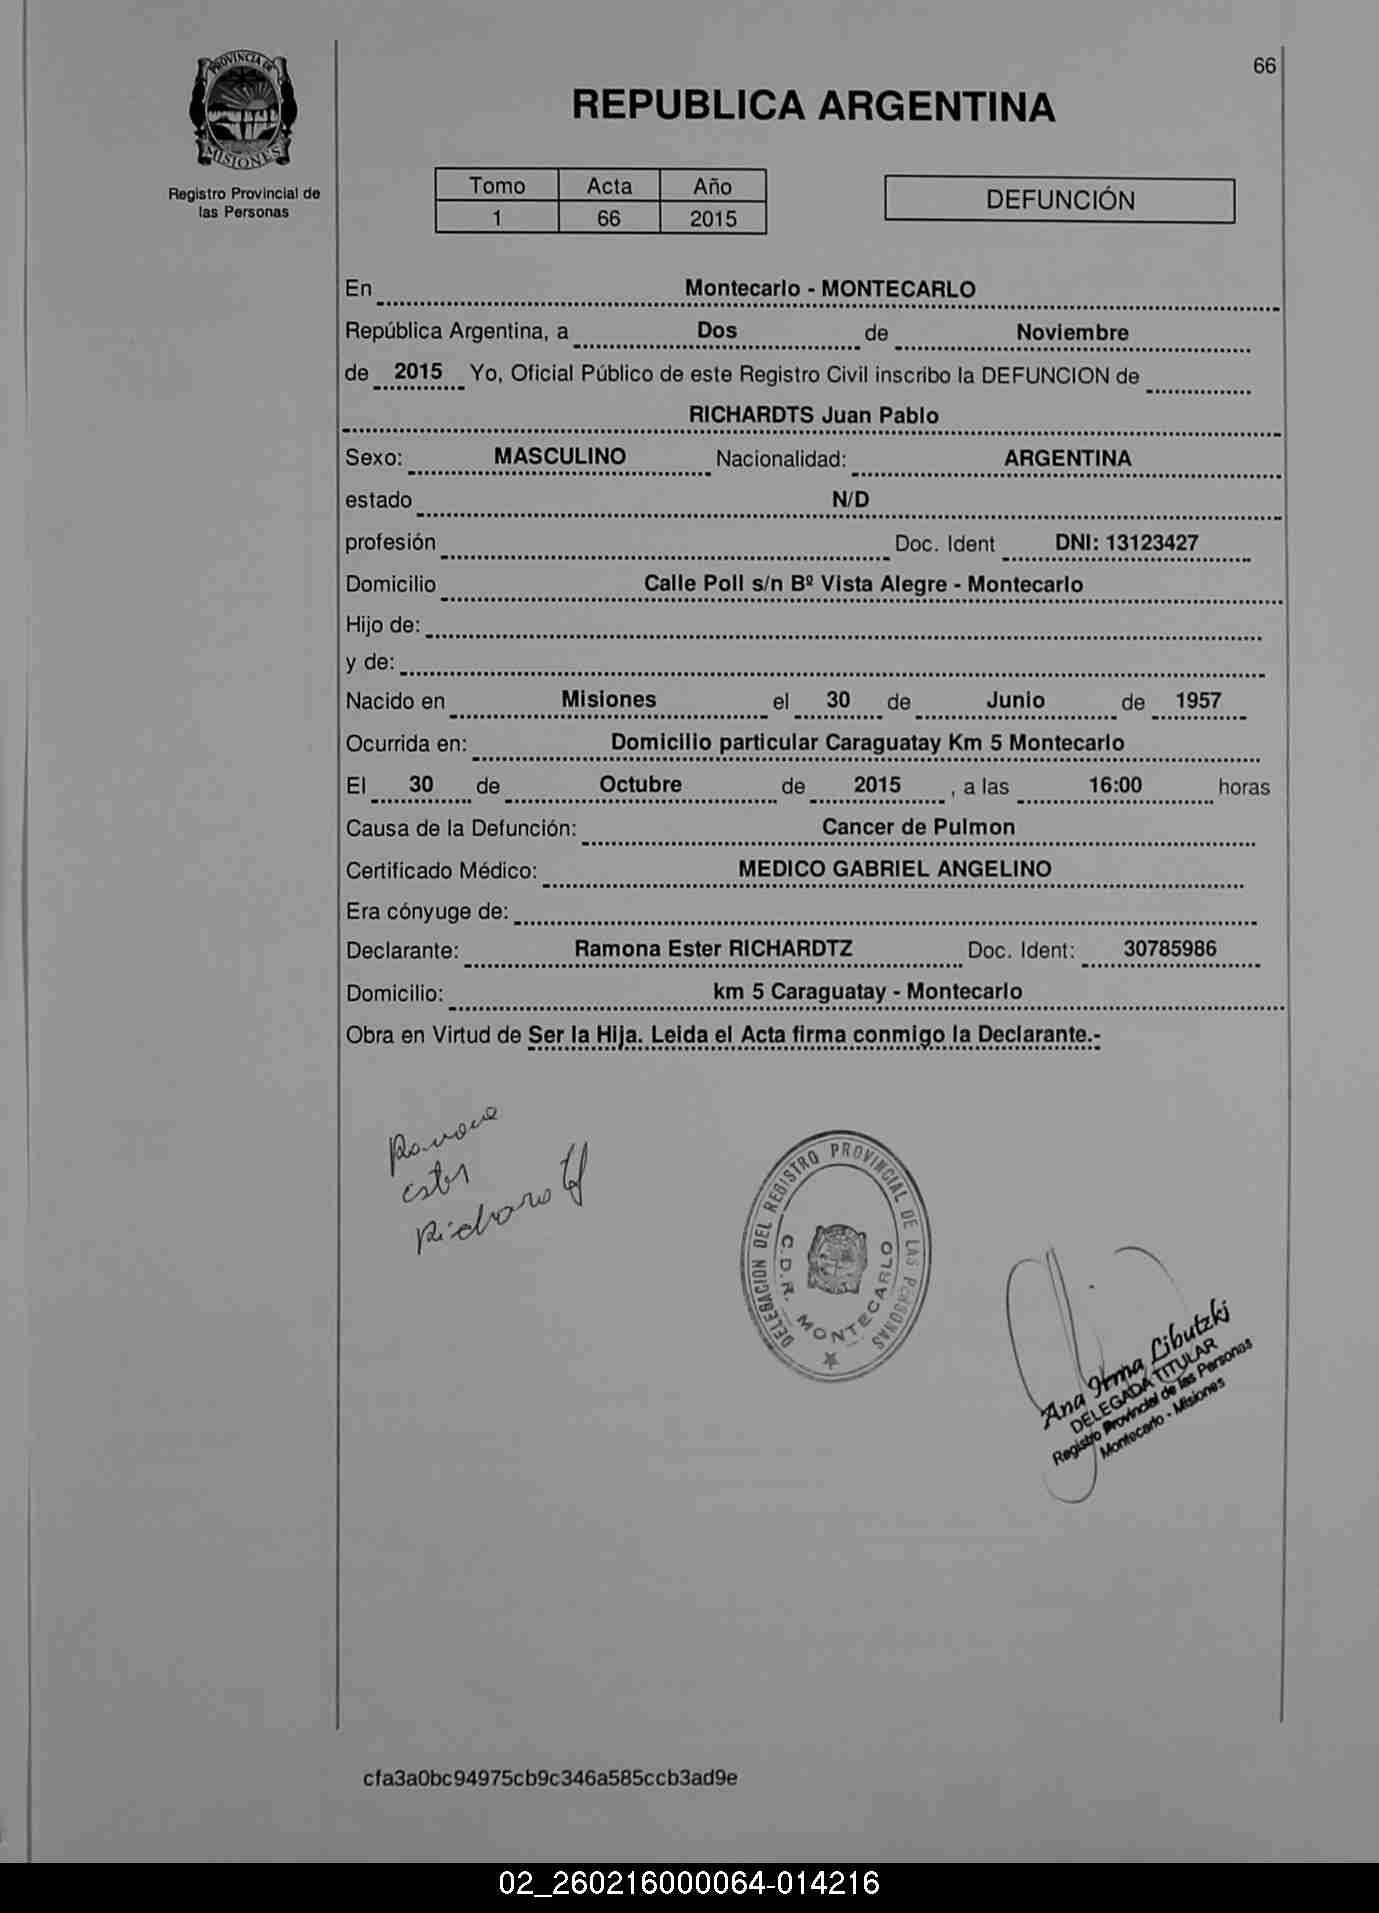 66
PROVINCIA DE
MISIONES
Registro Provincial de
las Personas
REPUBLICA ARGENTINA
Tomo Acta Año
1 66 2015
DEFUNCIÓN
En Montecarlo - MONTECARLO
República Argentina, a Dos de Noviembre
de 2015 Yo, Oficial Público de este Registro Civil inscribo la DEFUNCION de
RICHARDTS Juan Pablo
Sexo: MASCULINO Nacionalidad: ARGENTINA
estado N/D
profesión Doc. Ident DNI: 13123427
Domicilio Calle Poll s/n Bº Vista Alegre - Montecarlo
Hijo de:
y de:
Nacido en Misiones el 30 de Junio de 1957
Ocurrida en: Domicilio particular Caraguatay Km 5 Montecarlo
El 30 de Octubre de 2015 , a las 16:00 horas
Causa de la Defunción: Cancer de Pulmon
Certificado Médico: MEDICO GABRIEL ANGELINO
Era cónyuge de:
Declarante: Ramona Ester RICHARDTZ Doc. Ident: 30785986
Domicilio: km 5 Caraguatay - Montecarlo
Obra en Virtud de Ser la Hija. Leida el Acta firma conmigo la Declarante.-
Ramona
Ester
DELEGACION DEL REGISTRO PROVINCIAL DE LAS PERSONAS
C.D.R. MONTECARLO
Ana Irma Libutzki
DELEGADA TITULAR
Registro Provincial de las Personas
Montecarlo - Misiones
cfa3a0bc94975cb9c346a585ccb3ad9e
02_260216000064-014216